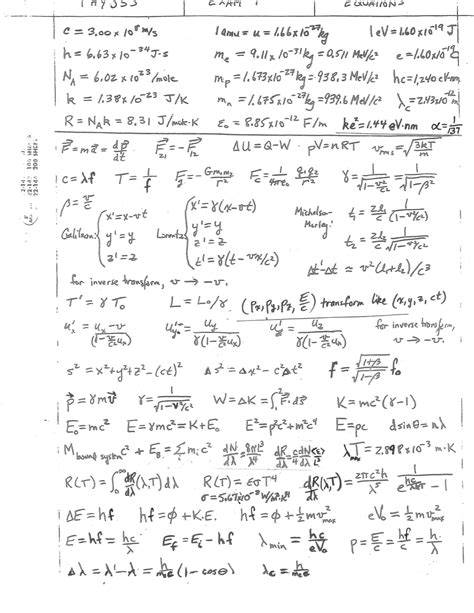 PHYS 353 EXAM 1 EQUATIONS
c = 3.00 x 10⁸ m/s 1 amu = u = 1.66x10⁻²⁷ kg 1 eV = 1.60x10⁻¹⁹ J
h = 6.63 x 10⁻³⁴ J·s mₑ = 9.11 x 10⁻³¹ kg = 0.511 MeV/c² e = 1.60x10⁻¹⁹ C
N_A = 6.02 x 10²³/mole m_p = 1.673x10⁻²⁷ kg = 938.3 MeV/c² hc = 1,240 eV·nm
k = 1.38x10⁻²³ J/K m_n = 1.675x10⁻²⁷ kg = 939.6 MeV/c² λ_c = 2.43x10⁻¹² m
R = N_A k = 8.31 J/mole·K ε₀ = 8.85x10⁻¹² F/m ke² = 1.44 eV·nm α = 1/137
F⃗ = ma⃗ = dp⃗/dt F⃗₂₁ = -F⃗₁₂ ΔU = Q-W pV = nRT v_rms = √(3kT/m)
c = λf T = 1/f F_g = -Gm₁m₂/r² F_c = 1/4πε₀ q₁q₂/r² γ = 1/√(1-v²/c²) = 1/√(1-β²)
β = v/c
Galilean: x' = x-vt y' = y z' = z
Lorentz: x' = γ(x-vt) y' = y z' = z t' = γ(t - vx/c²)
Michelson-Morley: t₁ = 2l₁/c 1/(1-v²/c²)
t₂ = 2l₂/c 1/√(1-v²/c²)
Δt'-Δt ≈ v²(l₁+l₂)/c³
for inverse transform, v → -v.
T' = γT₀ L = L₀/γ (p_x, p_y, p_z, E/c) transform like (x, y, z, ct)
u_x' = (u_x - v)/(1 - v/c² u_x) u_y' = u_y/γ(1 - v/c² u_x) u_z' = u_z/γ(1 - v/c² u_x) for inverse transform, v → -v.
s² = x²+y²+z²-(ct)² Δs² = Δx² - c²Δt² f = √(1+β)/√(1-β) f₀
p⃗ = γmv⃗ γ = 1/√(1-v²/c²) W = ΔK = ∫₁² F⃗·ds⃗ K = mc²(γ-1)
E₀ = mc² E = γmc² = K+E₀ E² = p²c² + m²c⁴ E = pc d sinθ = nλ
M_bound system c² + E_B = Σ mᵢc² dN/dλ = 8πL³/λ⁴ λ_max T = 2.898 x 10⁻³ m·K
R(T) = ∫₀^∞ dR/dλ (λ,T) dλ R(T) = εσT⁴ dR/dλ (λ,T) = 2πc²h/λ⁵ 1/(e^(hc/λkT) - 1)
ΔE = hf hf = φ + K.E. hf = φ + ½mv²_max eV₀ = ½mv²_max
E = hf = hc/λ E_f = E_i - hf λ_min = hc/eV₀ p = E/c = hf/c = h/λ
Δλ = λ'-λ = h/mₑc (1-cosθ) λ_c = h/mₑc